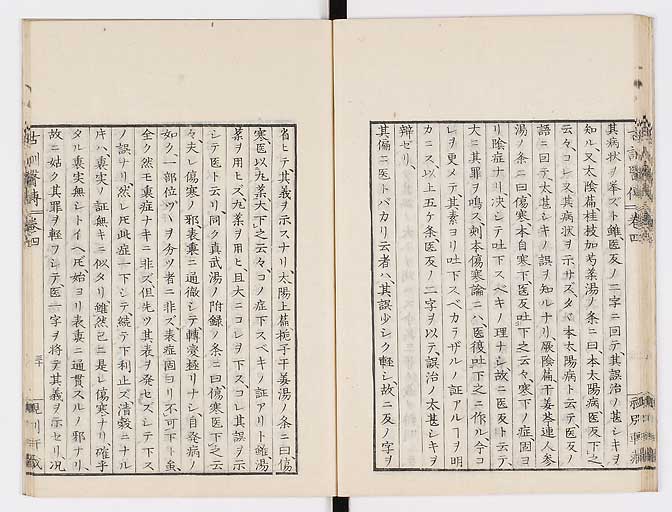 其病状ヲ挙ズト雖医反ノ二字ニ回テ其誤治ノ甚シキヲ
知ル、又太陰篇桂枝加芍薬湯ノ条ニ曰本太陽病医反下之
云々、コレ又其病状ヲ示サズ、タヾ本太陽病ト云テ、医反ノ
語ニ回テ、太甚シキノ誤ヲ知ルナリ、厥陰篇干姜芩連人参
湯ノ条ニ曰傷寒本自寒下医反吐下之云々、寒下ノ症固ヨ
リ陰症ナリ、决シテ吐下スベキノ理ナシ、故ニ医反ト云テ、
大ニ其罪ヲ鳴ス、刺本傷寒論ニハ、医復吐下之ニ作ル、今コ
レヲ更メテ其素ヨリ吐下スベカラザルノ証アルヿヲ明
カニス、以上五ケ条、医反ノ二字ヲ以テ、誤治ノ太甚シキヲ
辯ゼリ、
其偏ニ医トバカリ云者ハ、其誤少シク軽シ、故ニ反ノ字ヲ
省ヒテ其義ヲ示スナリ、太陽上篇梔子干姜湯ノ条ニ曰、傷
寒、医以丸薬、大下之云々、コノ症下スベキノ証アリト雖、湯
薬ヲ用ヒズ、丸薬ヲ用ヒ且大ニコレヲ下ス、コレ其誤ヲ示
シテ医ト云リ、同ク真武湯ノ附録ノ条ニ曰傷寒医下之云
々、夫レ傷寒ノ邪、表裏ニ通徹シテ轉変極リナシ、自発病ノ
如ク、一部位ヅヽヲ分ツ者ニ非ズ、表症固ヨリ不可下ト虽、
全ク然モ裏症ナキニ非ズ、但先ツ其表ヲ発セズシテ下ス
ノ誤ナリ、然レ𪜈此症一下シテ続テ下利止ズ清穀ニナル
𪜈ハ、裏実ノ証無キニ似タリ、雖然已ニ是レ傷寒ナリ、確乎
タル裏実無シトイヘ𪜈、始ヨリ表裏ニ通貫スルノ邪ナリ、
故ニ姑ク其罪ヲ軽フシテ医一字ヲ将テ其義ヲ示セリ、况
古訓醫傳
巻四